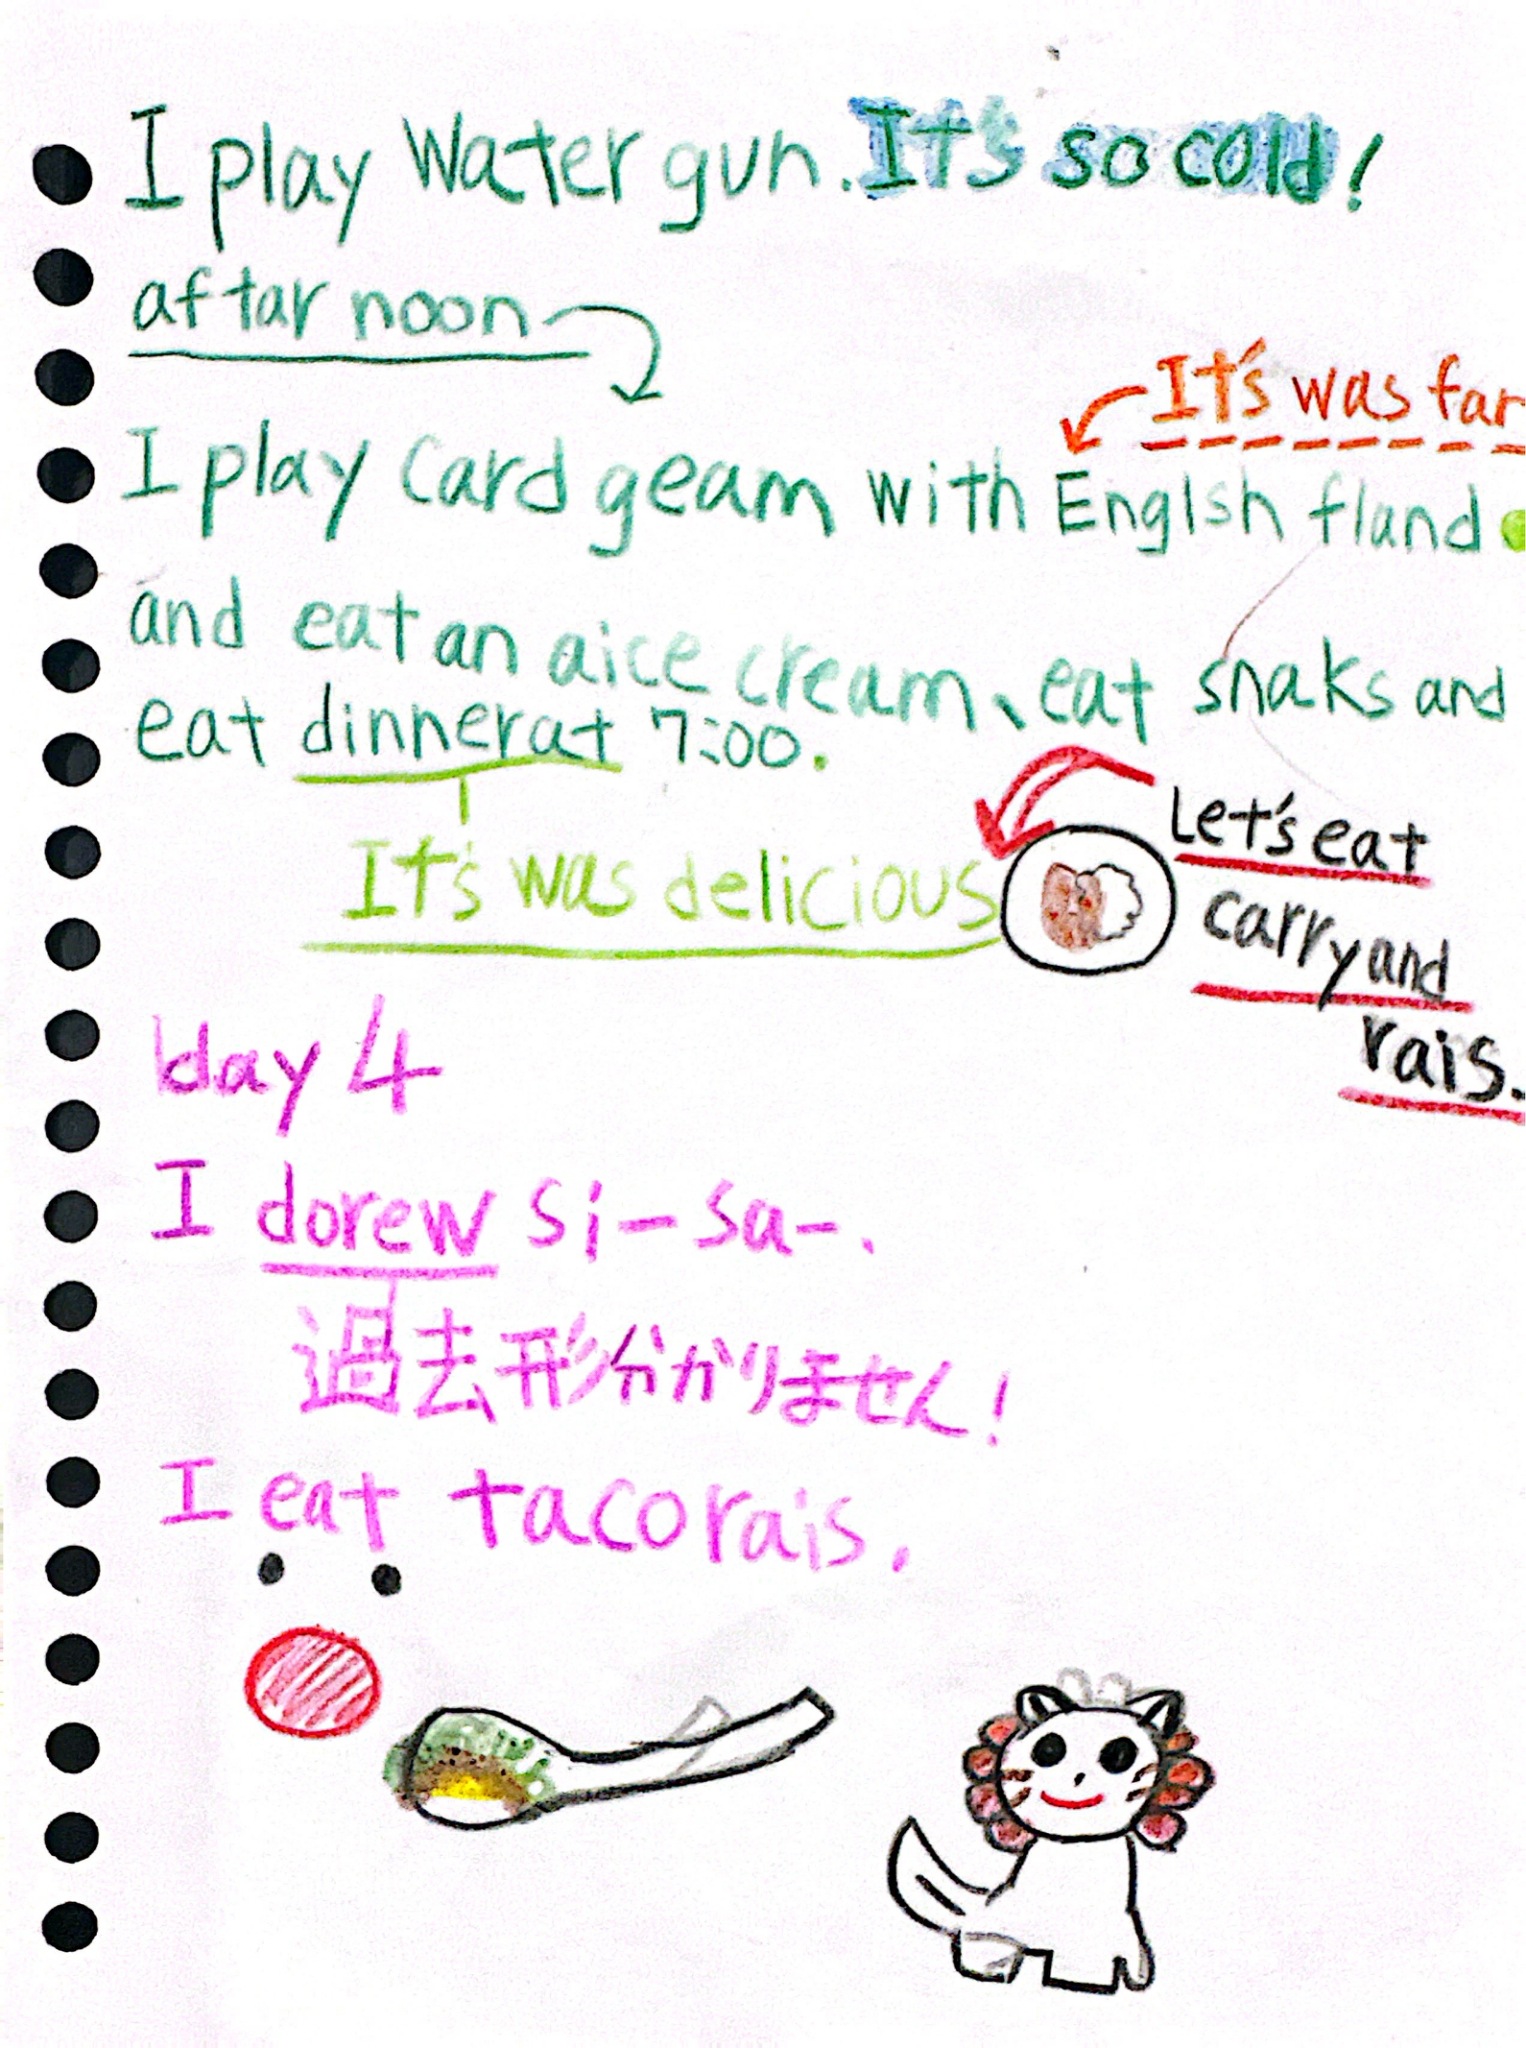 I play Water gun. It's so cold!
aftar noon
It's was far
I play Card geam with Englsh fland
and eat an aice cream、eat snaks and
eat dinner at 7:00.
It's was delicious
Let's eat
carry and
rais.
day 4
I dorew si-sa-.
過去形分かりません!
I eat tacorais.